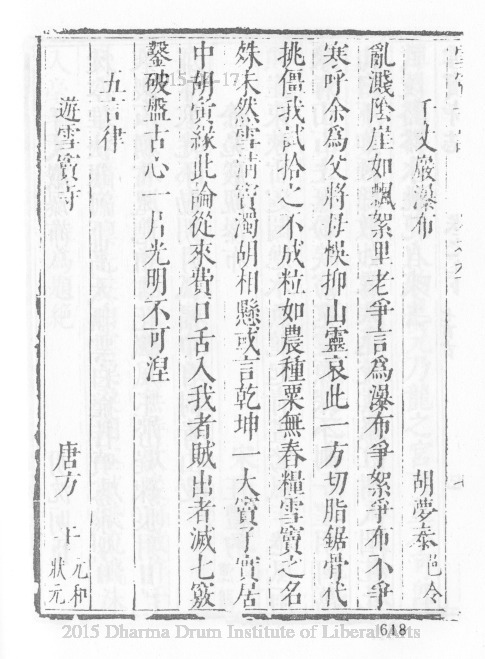 千丈巖瀑布 胡夢泰 邑令
亂濺陰崖如飄絮里老爭言為瀑布爭絮爭布不爭
寒呼余為父將母悞抑山靈哀此一方切脂鋸骨代
挑僵我試拾之不成粒如農種粟無春糧雪竇之名
殊未然雪清竇濁胡相懸或言乾坤一大竇丁實居
中胡寅緣此論從來費口舌入我者賊出者滅七竅
鑿破盤古心一片光明不可湼
五言律
遊雪竇寺 唐方干 元和狀元
618
2015 Dharma Drum Institute of Liberal Arts